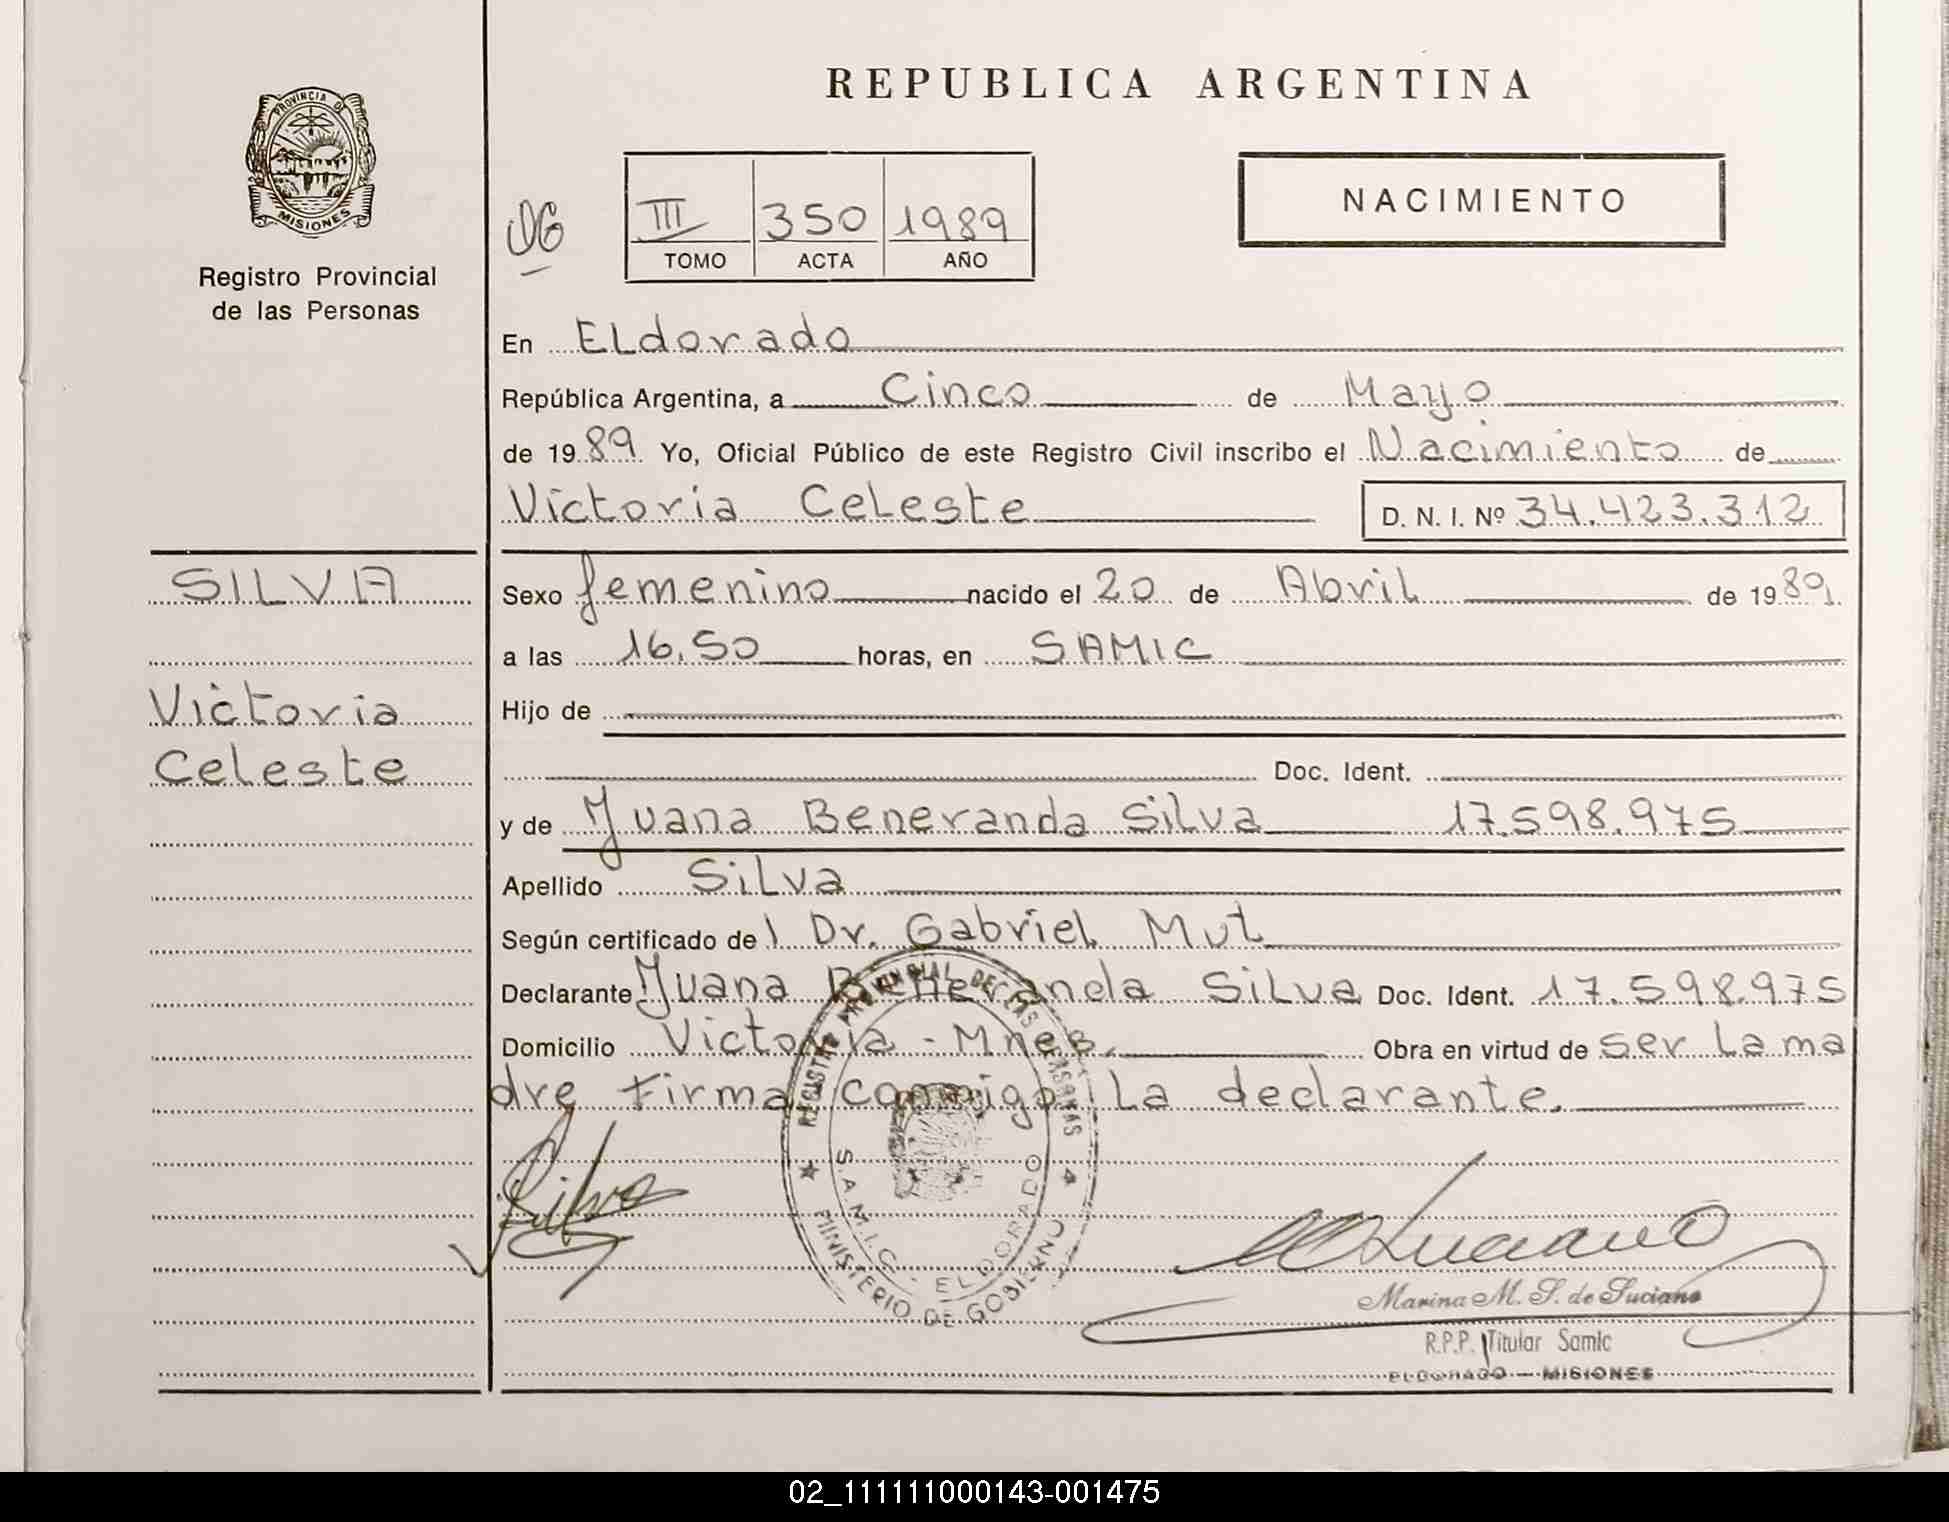 REPUBLICA ARGENTINA
PROVINCIA DE
MISIONES
Registro Provincial
de las Personas
III 350 1989
TOMO ACTA AÑO
NACIMIENTO
En Eldorado
República Argentina, a Cinco de Mayo
de 1989 Yo, Oficial Público de este Registro Civil inscribo el Nacimiento de
Victoria Celeste D. N. I. Nº 34.423.312
SILVA
Victoria
Celeste
Sexo femenino nacido el 20 de Abril de 1989
a las 16.50 horas, en SAMIC
Hijo de
Doc. Ident.
y de Juana Beneranda Silva 17.598.975
Apellido Silva
Según certificado de l Dr. Gabriel Mut
Declarante Juana Beneranda Silva Doc. Ident. 17.598.975
Domicilio Victoria - Mnes. Obra en virtud de ser la ma
dre firma conmigo la declarante.
REGISTRO PROVINCIAL DE LAS PERSONAS
S.A.M.I.C. - ELDORADO
MINISTERIO DE GOBIERNO
Silva
M Luciano
Marina M. S. de Luciano
R.P.P. Titular Samic
ELDORADO — MISIONES
02_111111000143-001475